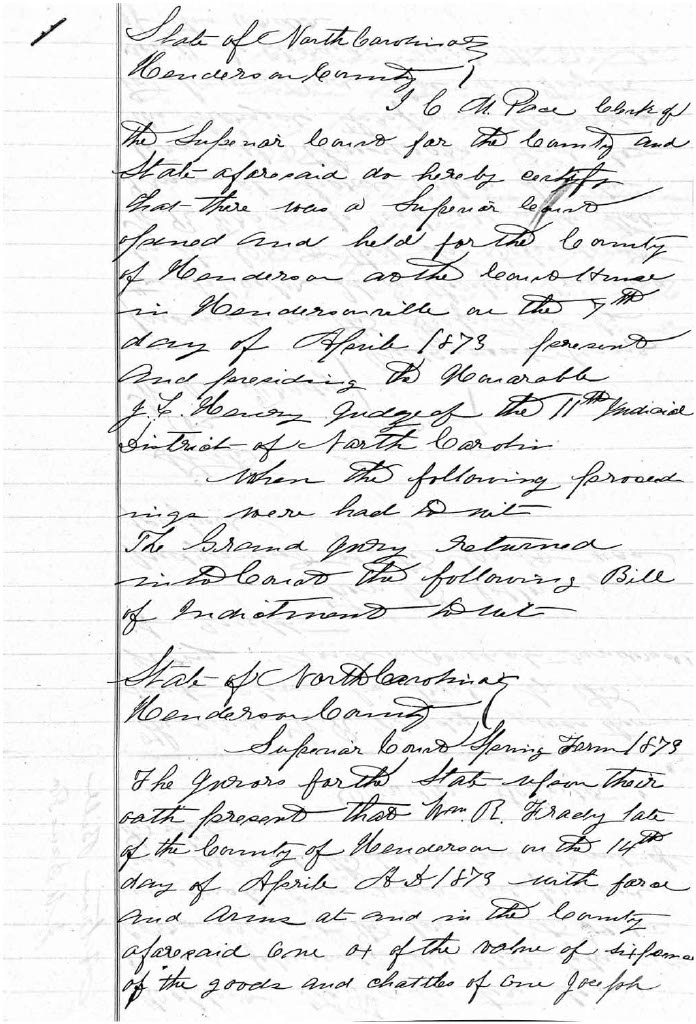 1
State of North Carolina
Henderson County
I C M Pace Clerk of
the Superior Court for the County and
State aforesaid do hereby certify
that there was a Superior Court
opened and held for the County
of Henderson at the Court House
in Hendersonville on the 7th
day of Aprile 1873 present
and presiding the Honorable
J. L. Henry Judge of the 11th Judicial
District of North Carolin
when the following proceed
ings were had to wit
The Grand Jury returned
into Court the following Bill
of Indictment to wit
State of North Carolina
Henderson County
Superior Court Spring Term 1873
The Jurors for the State upon their
oath present that Wm. R. Frady late
of the County of Henderson on the 14th
day of Aprile AD 1873 with force
and arms at and in the County
aforesaid one ox of the value of sixpence
of the goods and chattles of one Joseph